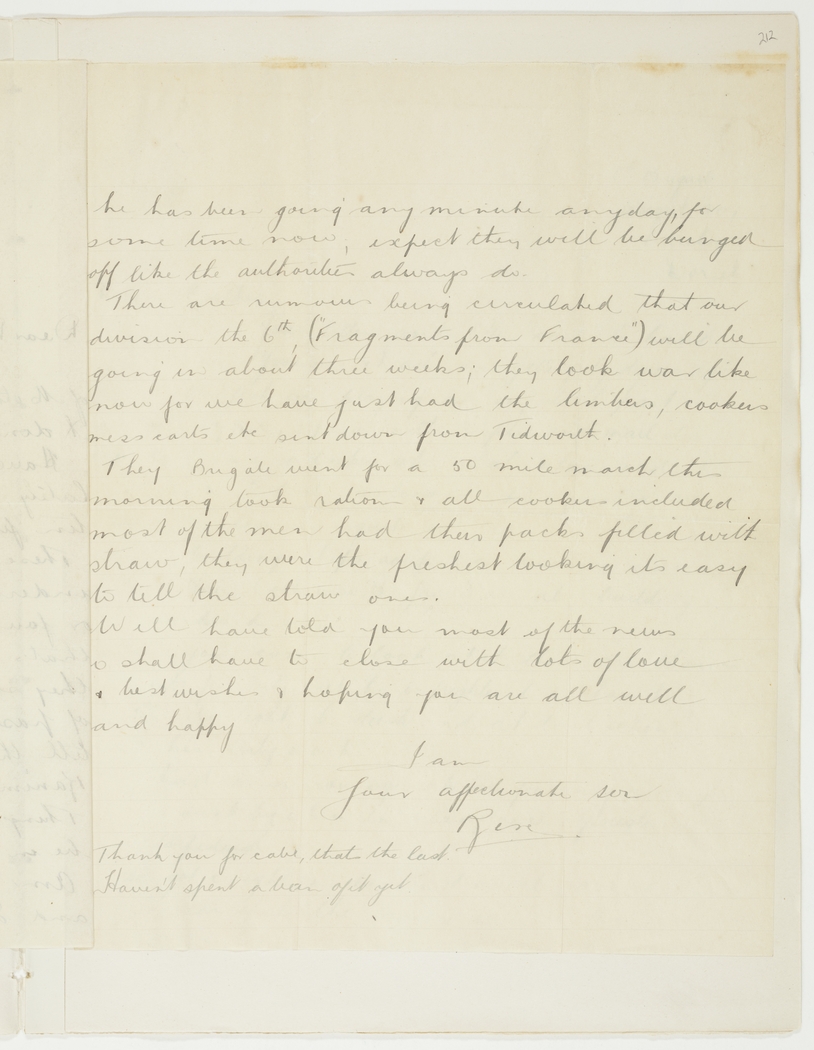 212
he has been going any minute anyday, for
some time now, expect they will be bunged
off like the authorities always do.
There are rumours being circulated that our
division the 6th, ("Fragments from France") will be
going in about three weeks; they look war like
now for we have just had the limbers, cookers
mess carts etc sent down from Tidworth.
They Brigade went for a 50 mile march this
morning took rations & all cookers included
most of the men had their packs filled with
straw, they were the freshest looking its easy
to tell the straw ones.
Well have told you most of the news
so shall have to close with lots of love
& best wishes & hoping you are all well
and happy
I am
Your affectionate son
Thank you for cable, thats the last.
Haven't spent a bean of it yet.